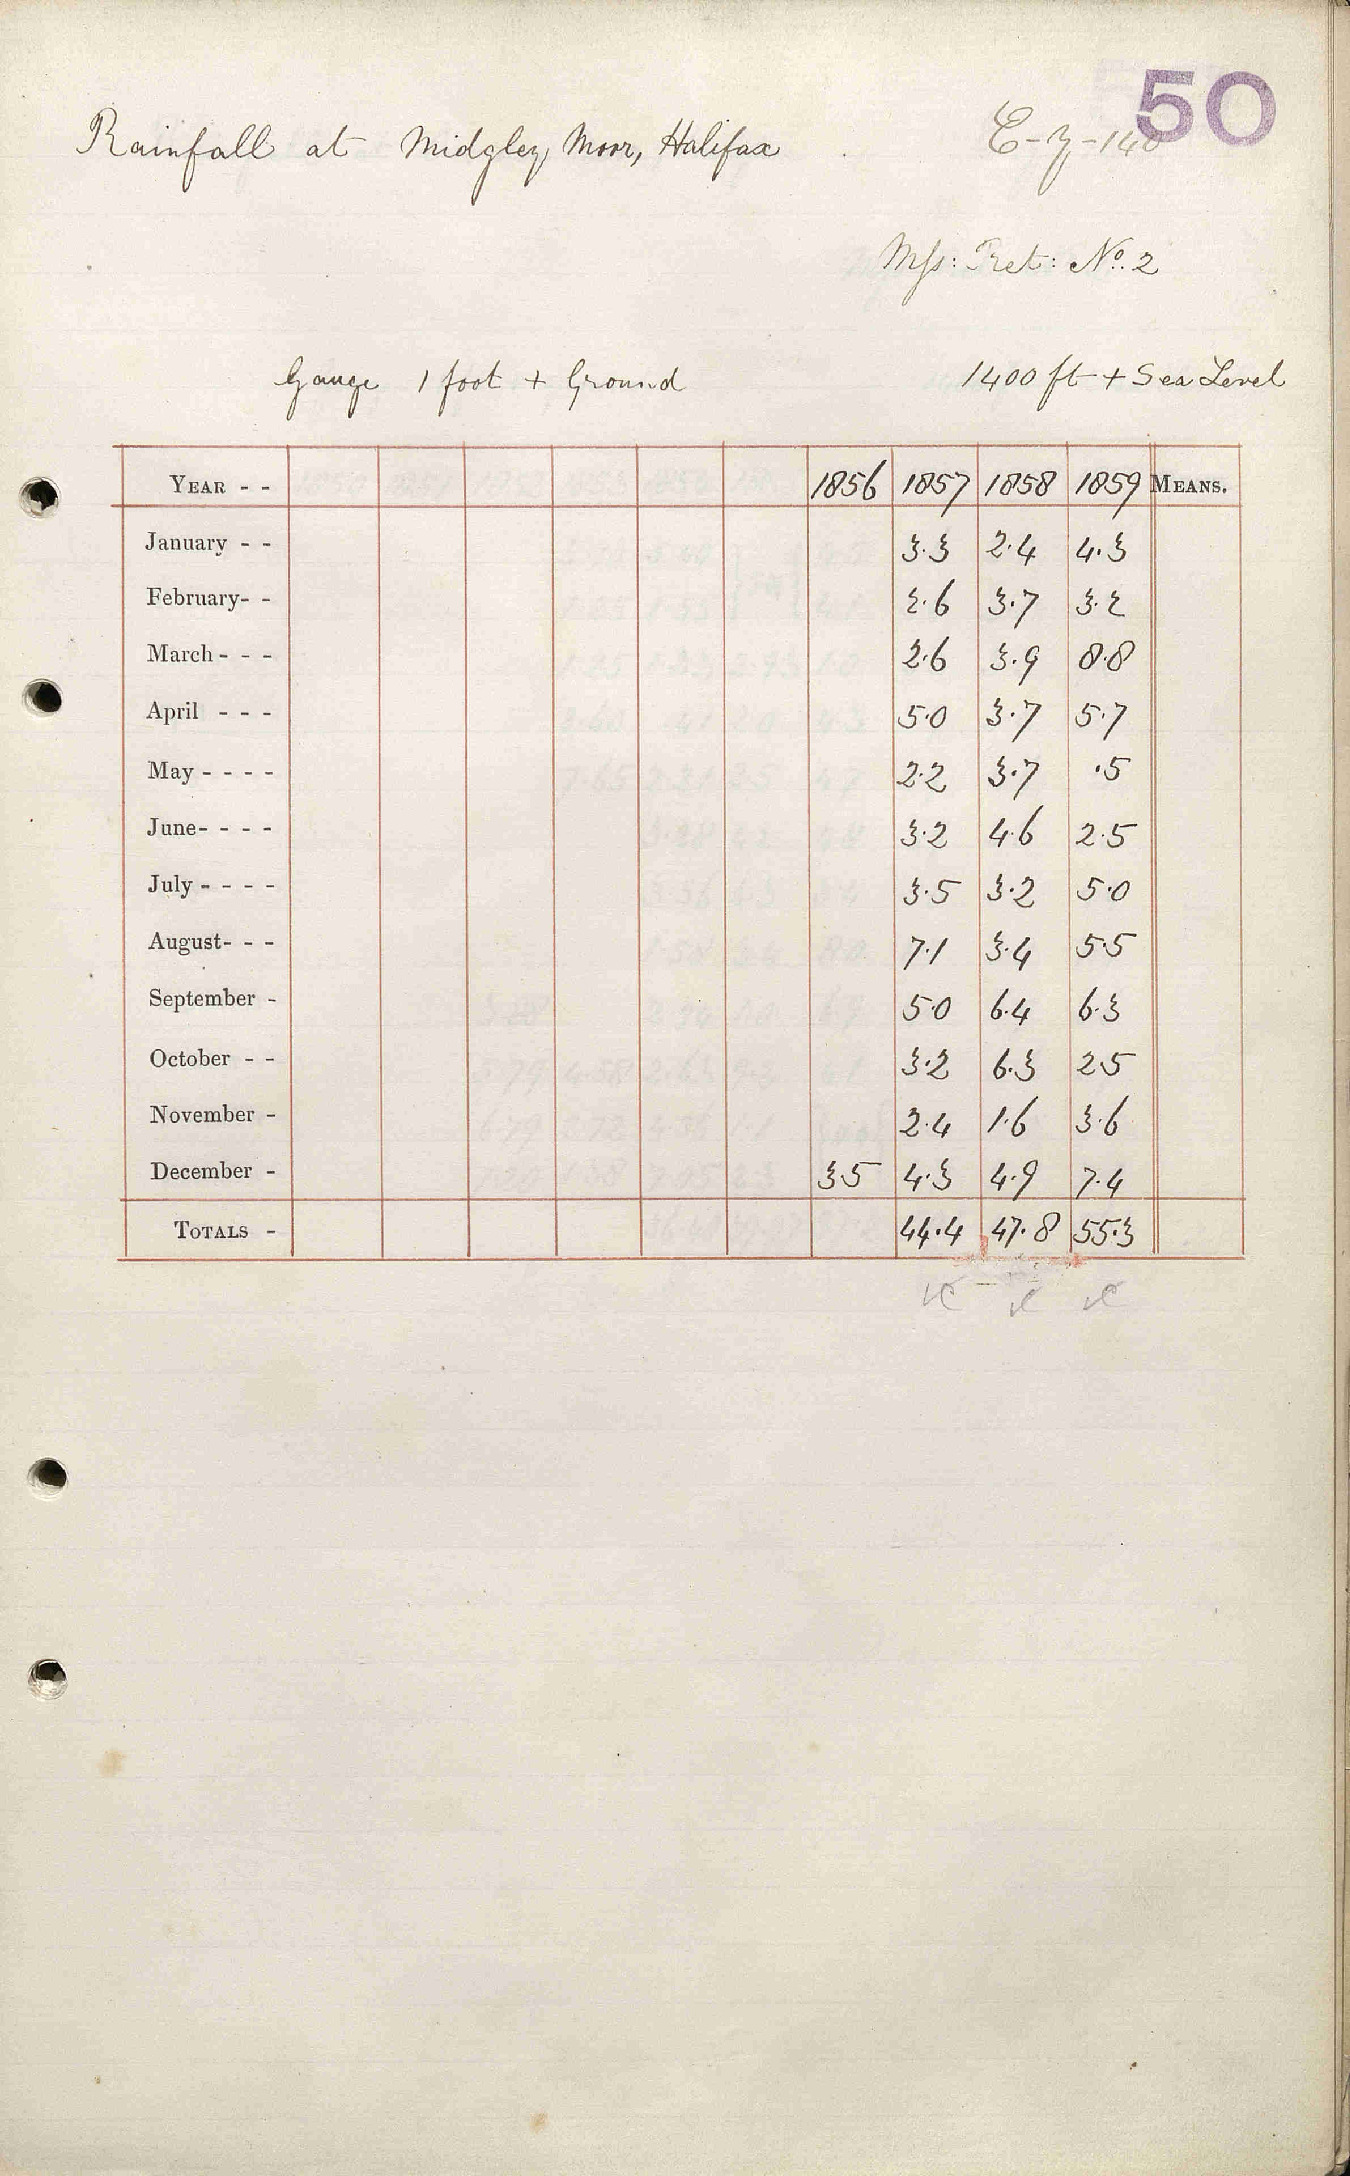 50
Rainfall at Midgley Moor, Halifax E-z-140
Mss: Ret: No. 2
Gauge 1 foot + Ground 1400 ft + Sea Level
YEAR - - 1856 1857 1858 1859 MEANS.
January - - 3.3 2.4 4.3
February- - 2.6 3.7 3.2
March - - - 2.6 3.9 8.8
April - - - 5.0 3.7 5.7
May - - - - 2.2 3.7 .5
June- - - - 3.2 4.6 2.5
July - - - - 3.5 3.2 5.0
August- - - 7.1 3.4 5.5
September - 5.0 6.4 6.3
October - - 3.2 6.3 2.5
November - 2.4 1.6 3.6
December - 3.5 4.3 4.9 7.4
TOTALS - 44.4 47.8 55.3